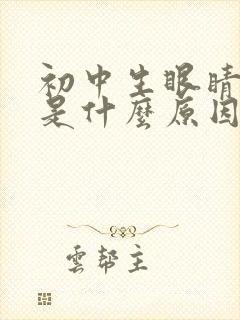 初中生眼睛
是什麼原因
雲幫主